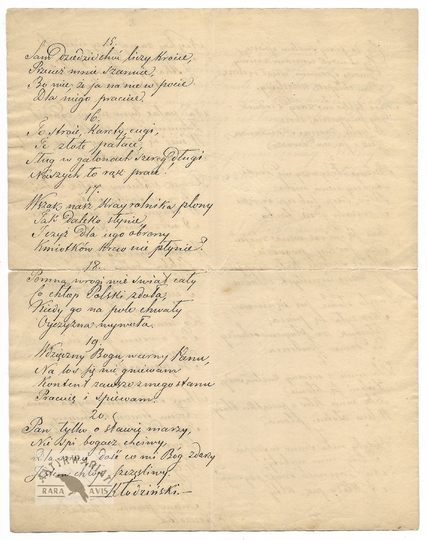 15.
Sam dziedzic choć liczy krocie,
Przecież mnie szanuie,
Bo wie, że ja na nie w pocie
Dla niego pracuie.
16.
Te stroie, karety, cugi,
Te złote pałace,
Sług w galonach szereg długi
Naszych to rąk prace.
17.
Wszak nasz kray rolnika plony
Tak daleko słynie
I czyż dla iego obrony
Kmiotków krew nie płynie?
18.
Pomną wrogi wie świat cały
Co chłop Polski zdoła,
Kiedy go na pole chwały
Oyczyzna wywoła.
19.
Wdzięczny Bogu, wierny Panu,
Na los się nie gniewam
Kontent zawsze z mego stanu
Pracuię i śpiewam.
20.
Pan tylko o sławie marzy,
Nie śpi bogacz chciwy,
Dla mnie dość co mi Bóg zdarzy
Jestem chłop szczęśliwy
Kłodziński.—
ANTYKWARIAT
RARA AVIS